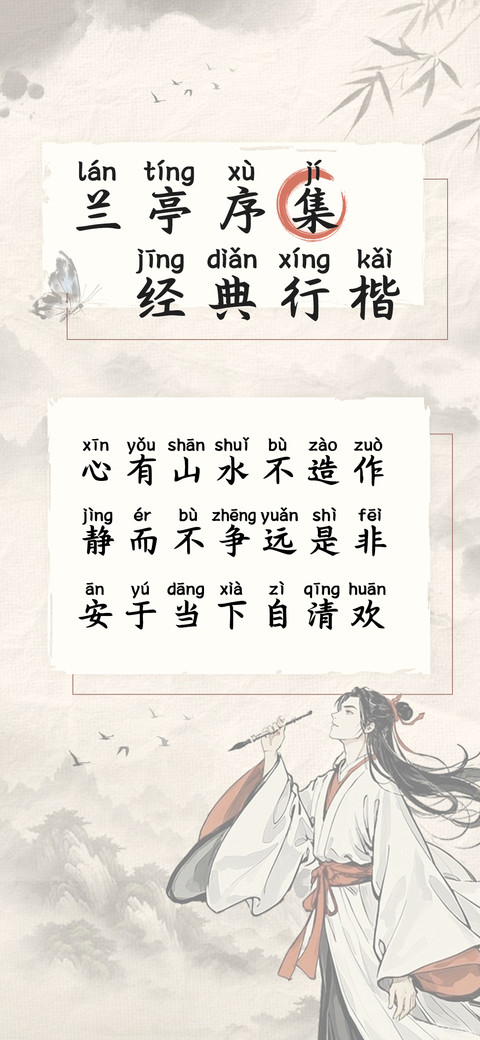 lán tíng xù jí
兰亭序集
jīng diǎn xíng kǎi
经典行楷
xīn yǒu shān shuǐ bù zào zuò
心有山水不造作
jìng ér bù zhēng yuǎn shì fēi
静而不争远是非
ān yú dāng xià zì qīng huān
安于当下自清欢